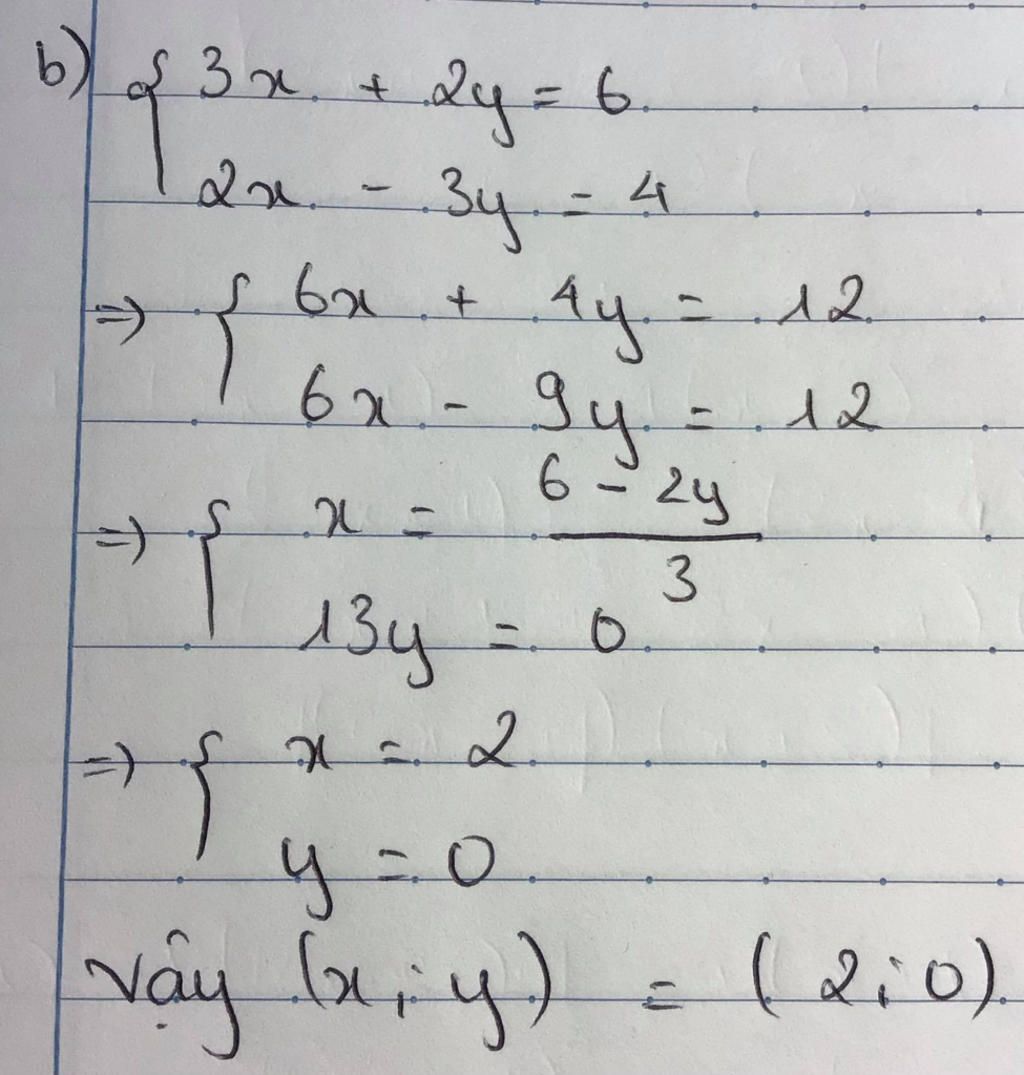 b) { 3x + 2y = 6
2x - 3y = 4
=> { 6x + 4y = 12
6x - 9y = 12
=> { x = (6 - 2y)/3
13y = 0
=> { x = 2
y = 0
Vậy (x; y) = (2; 0).